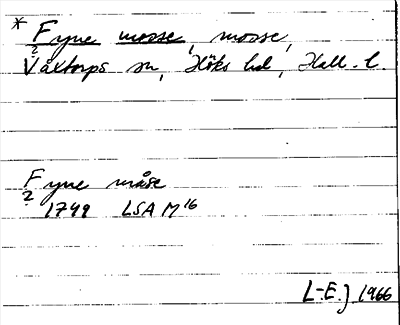 * Fyne mosse, mosse,
?
Våxtorps sn, Höks hd, Hall. l.
Fyne måse
?
1749 LSA M16
L-E.J 1966